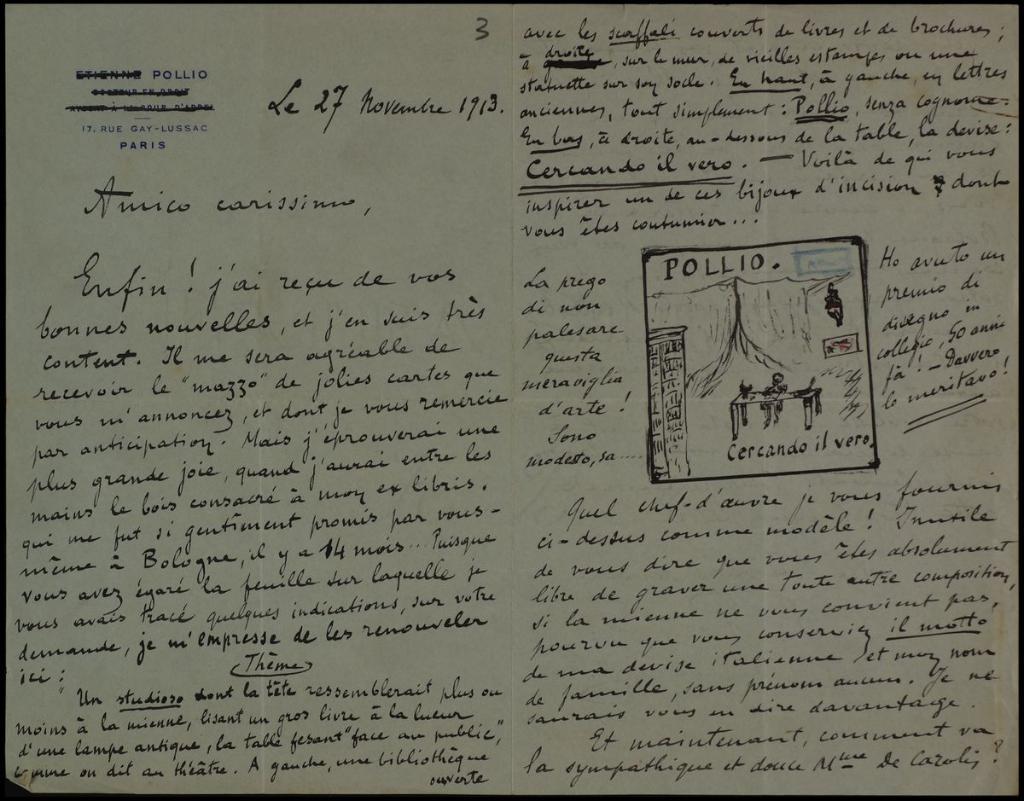 3
ETIENNE POLLIO
DOCTEUR EN DROIT
AVOCAT À LA COUR D'APPEL
17, RUE GAY-LUSSAC
PARIS
Le 27 Novembre 1913.
Amico carissimo,
Enfin ! j'ai reçu de vos
bonnes nouvelles, et j'en suis très
content. Il me sera agréable de
recevoir le "mazzo" de jolies cartes que
vous m'annoncez, et dont je vous remercie
par anticipation. Mais j'éprouverai une
plus grande joie, quand j'aurai entre les
mains le bois consacré à mon ex libris,
qui me fut si gentiment promis par vous-
même à Bologne, il y a 14 mois... Puisque
vous avez égaré la feuille sur laquelle je
vous avais tracé quelques indications, sur votre
demande, je m'empresse de les renouveler
ici :
(Thème)
"Un studioso dont la tête ressemblerait plus ou
moins à la mienne, lisant un gros livre à la lueur
d'une lampe antique, la table fesant "face au public,"
comme on dit au théâtre. A gauche, une bibliothèque
ouverte
avec les scaffali couverts de livres et de brochures ;
à droite, sur le mur, de vieilles estampes ou une
statuette sur son socle. En haut, à gauche, en lettres
anciennes, tout simplement : Pollio, senza cognome.
En bas, à droite, au-dessous de la table, la devise :
Cercando il vero. — Voilà de qui vous
inspirer un de ces bijoux d'incision dont
vous êtes coutumier...
La prego
di non
palesare
questa
meraviglia
d'arte !
Sono
modesto, sa....
POLLIO.
Cercando il vero.
Ho avuto un
premio di
disegno in
collegio, 50 anni
fà ! — Davvero
lo meritavo !
Quel chef-d'œuvre je vous fournis
ci-dessus comme modèle ! Inutile
de vous dire que vous êtes absolument
libre de graver une toute autre composition,
si la mienne ne vous convient pas,
pourvu que vous conserviez il motto
de ma devise italienne et mon nom
de famille, sans prénom aucun. Je ne
saurais vous en dire davantage.
Et maintenant, comment va
la sympathique et douce Mme De Carolis ?